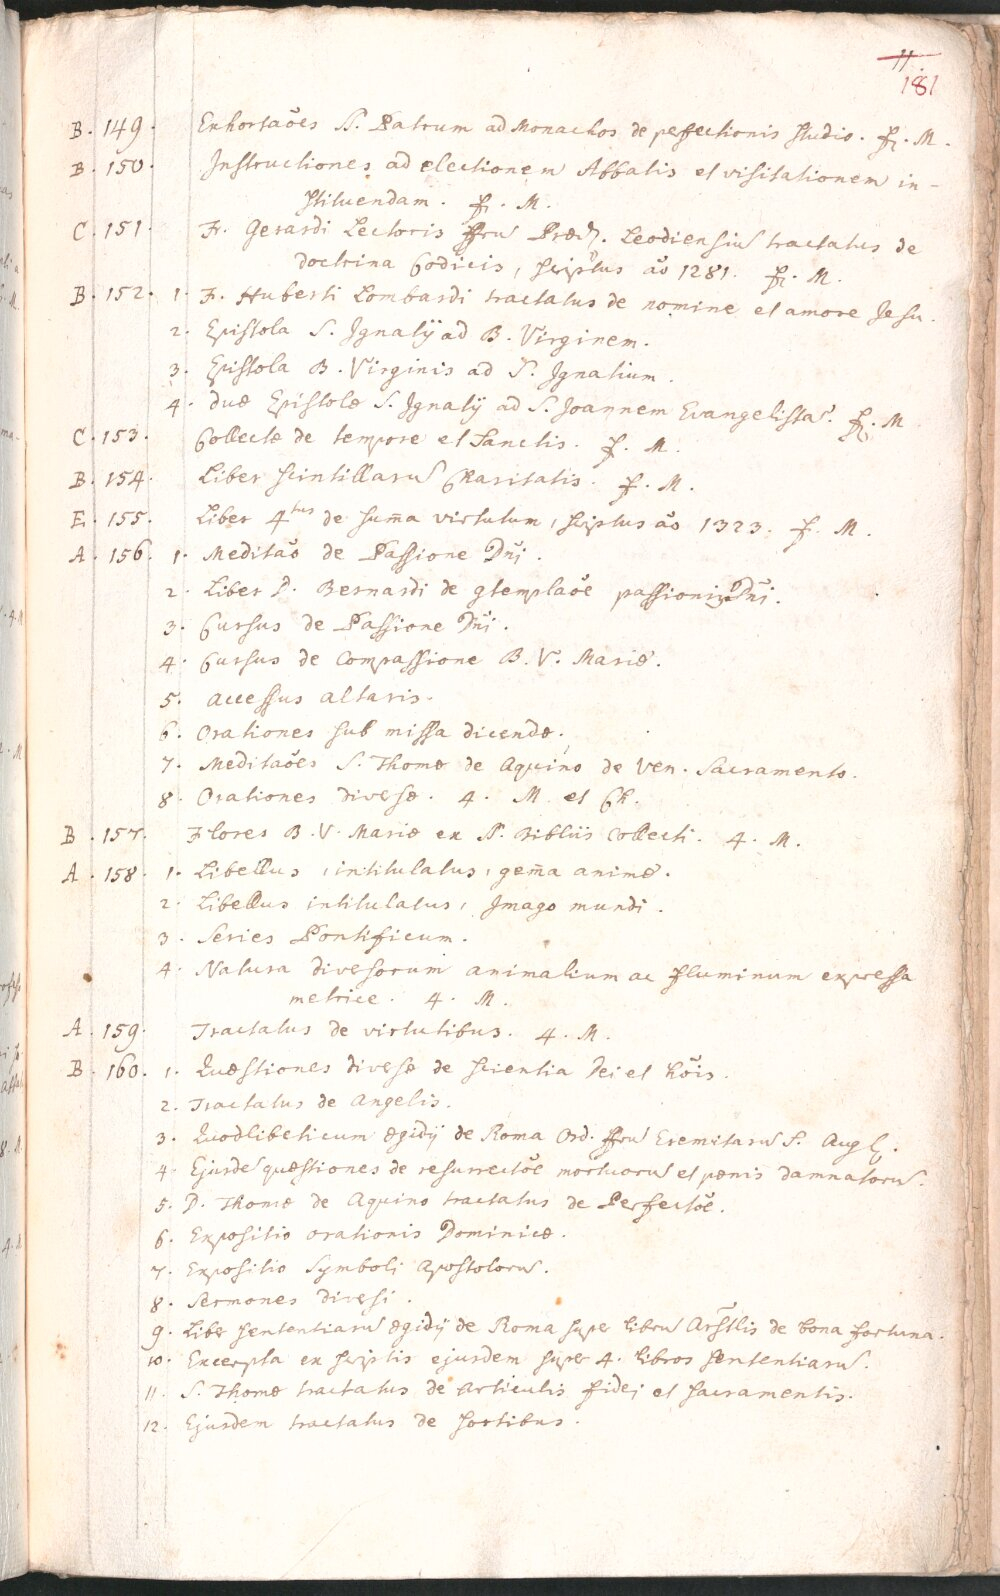 11
181
B. 149. Exhortaões SS. Patrum ad Monachos de perfectionis studio. f. M.
B. 150. Instructiones ad electionem Abbatis et visitationem in-
stituendam. f. M.
C. 151. Fr. Gerardi Lectoris ffrũ Præd. Leodiensiũ tractatus de
doctrina Codicis, scriptus aõ 1281. f. M.
B. 152. 1. F. Huberti Lombardi tractatus de nomine et amore Jesu.
2. Epistola S. Ignatÿ ad B. Virginem.
3. Epistola B. Virginis ad S. Ignatium.
4. duæ Epistolæ S. Ignatÿ ad S. Joannem Evangelistã. f. M
C. 153. Collectæ de tempore et Sanctis. f. M.
B. 154. Liber scintillarũ Charitatis. f. M.
E. 155. Liber 4tus de sum̃a virtutum, scriptus aõ 1323. f. M.
A. 156. 1. Meditaõ de Passione Dñi.
2. Liber D. Bernardi de gtemplaõe passionis Dñi.
3. Cursus de Passione Dñi.
4. Cursus de Compassione B. V. Mariæ.
5. accessus altaris.
6. Orationes sub missa dicendæ.
7. Meditaões S. Thomæ de Aquino de Ven. Sacramento.
8. Orationes diversæ. 4. M. et Ch.
B. 157. Flores B. V. Mariæ ex SS. Bibliis collecti. 4. M.
A. 158. 1. Libellus, intitulatus, gem̃a animæ.
2. Libellus intitulatus, Imago mundi.
3. Series Pontificum.
4. Natura diversorum animalium ac fluminum expressa
metrice. 4. M.
A. 159. Tractatus de virtutibus. 4. M.
B. 160. 1. Quæstiones diversæ de scientia Dei et hõis.
2. Tractatus de Angelis.
3. Quodlibeticum ægidÿ de Roma Ord. ffrũ Eremitarũ S. Aug.
4. Ejusdẽ quæstiones de resurrectõe mortuorũ et pœnis damnatorũ.
5. D. Thomæ de Aquino tractatus de Perfectõe.
6. Expositio orationis Dominicæ.
7. Expositio Symboli Apostolorũ.
8. Sermones diversi.
9. Liber sententiarũ ægidÿ de Roma super librũ Arist̃lis de bona fortuna.
10. Excerpta ex scriptis ejusdem super 4. libros sententiarũ.
11. S. Thomæ tractatus de articulis fidej et sacramentis.
12. Ejusdem tractatus de sortibus.